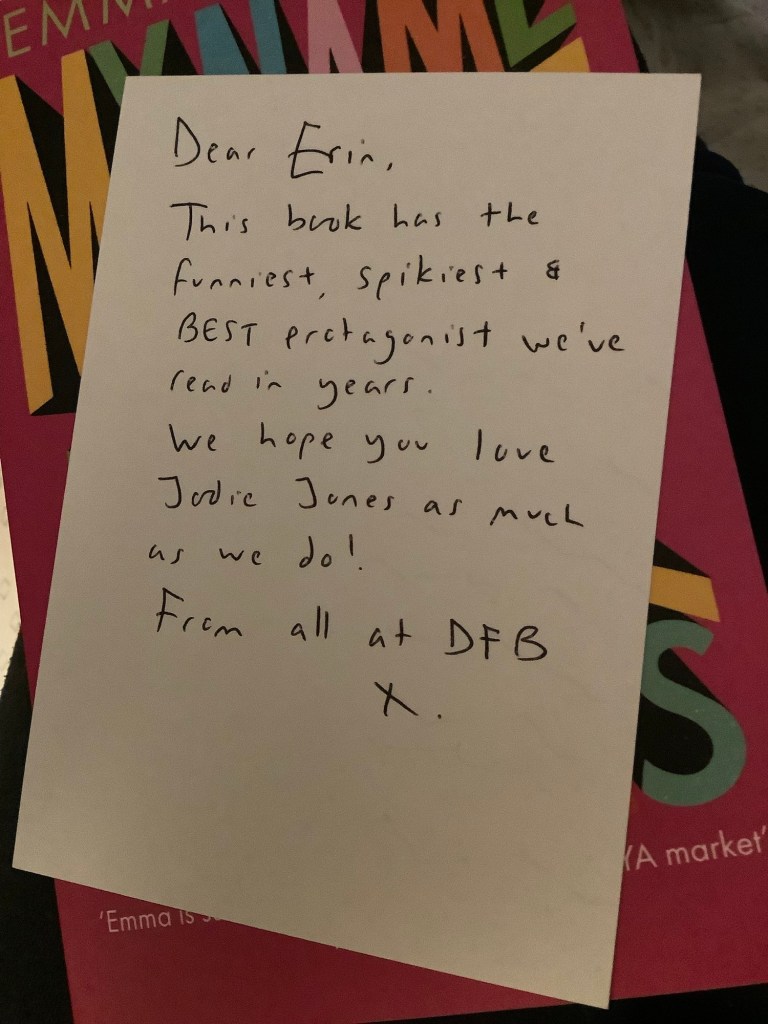 EMMA
MY NAME
Dear Erin,
This book has the
funniest, spikiest &
BEST protagonist we've
read in years.
We hope you love
Jodie Jones as much
as we do!
From all at DFB
X.
S
YA market'
'Emma is